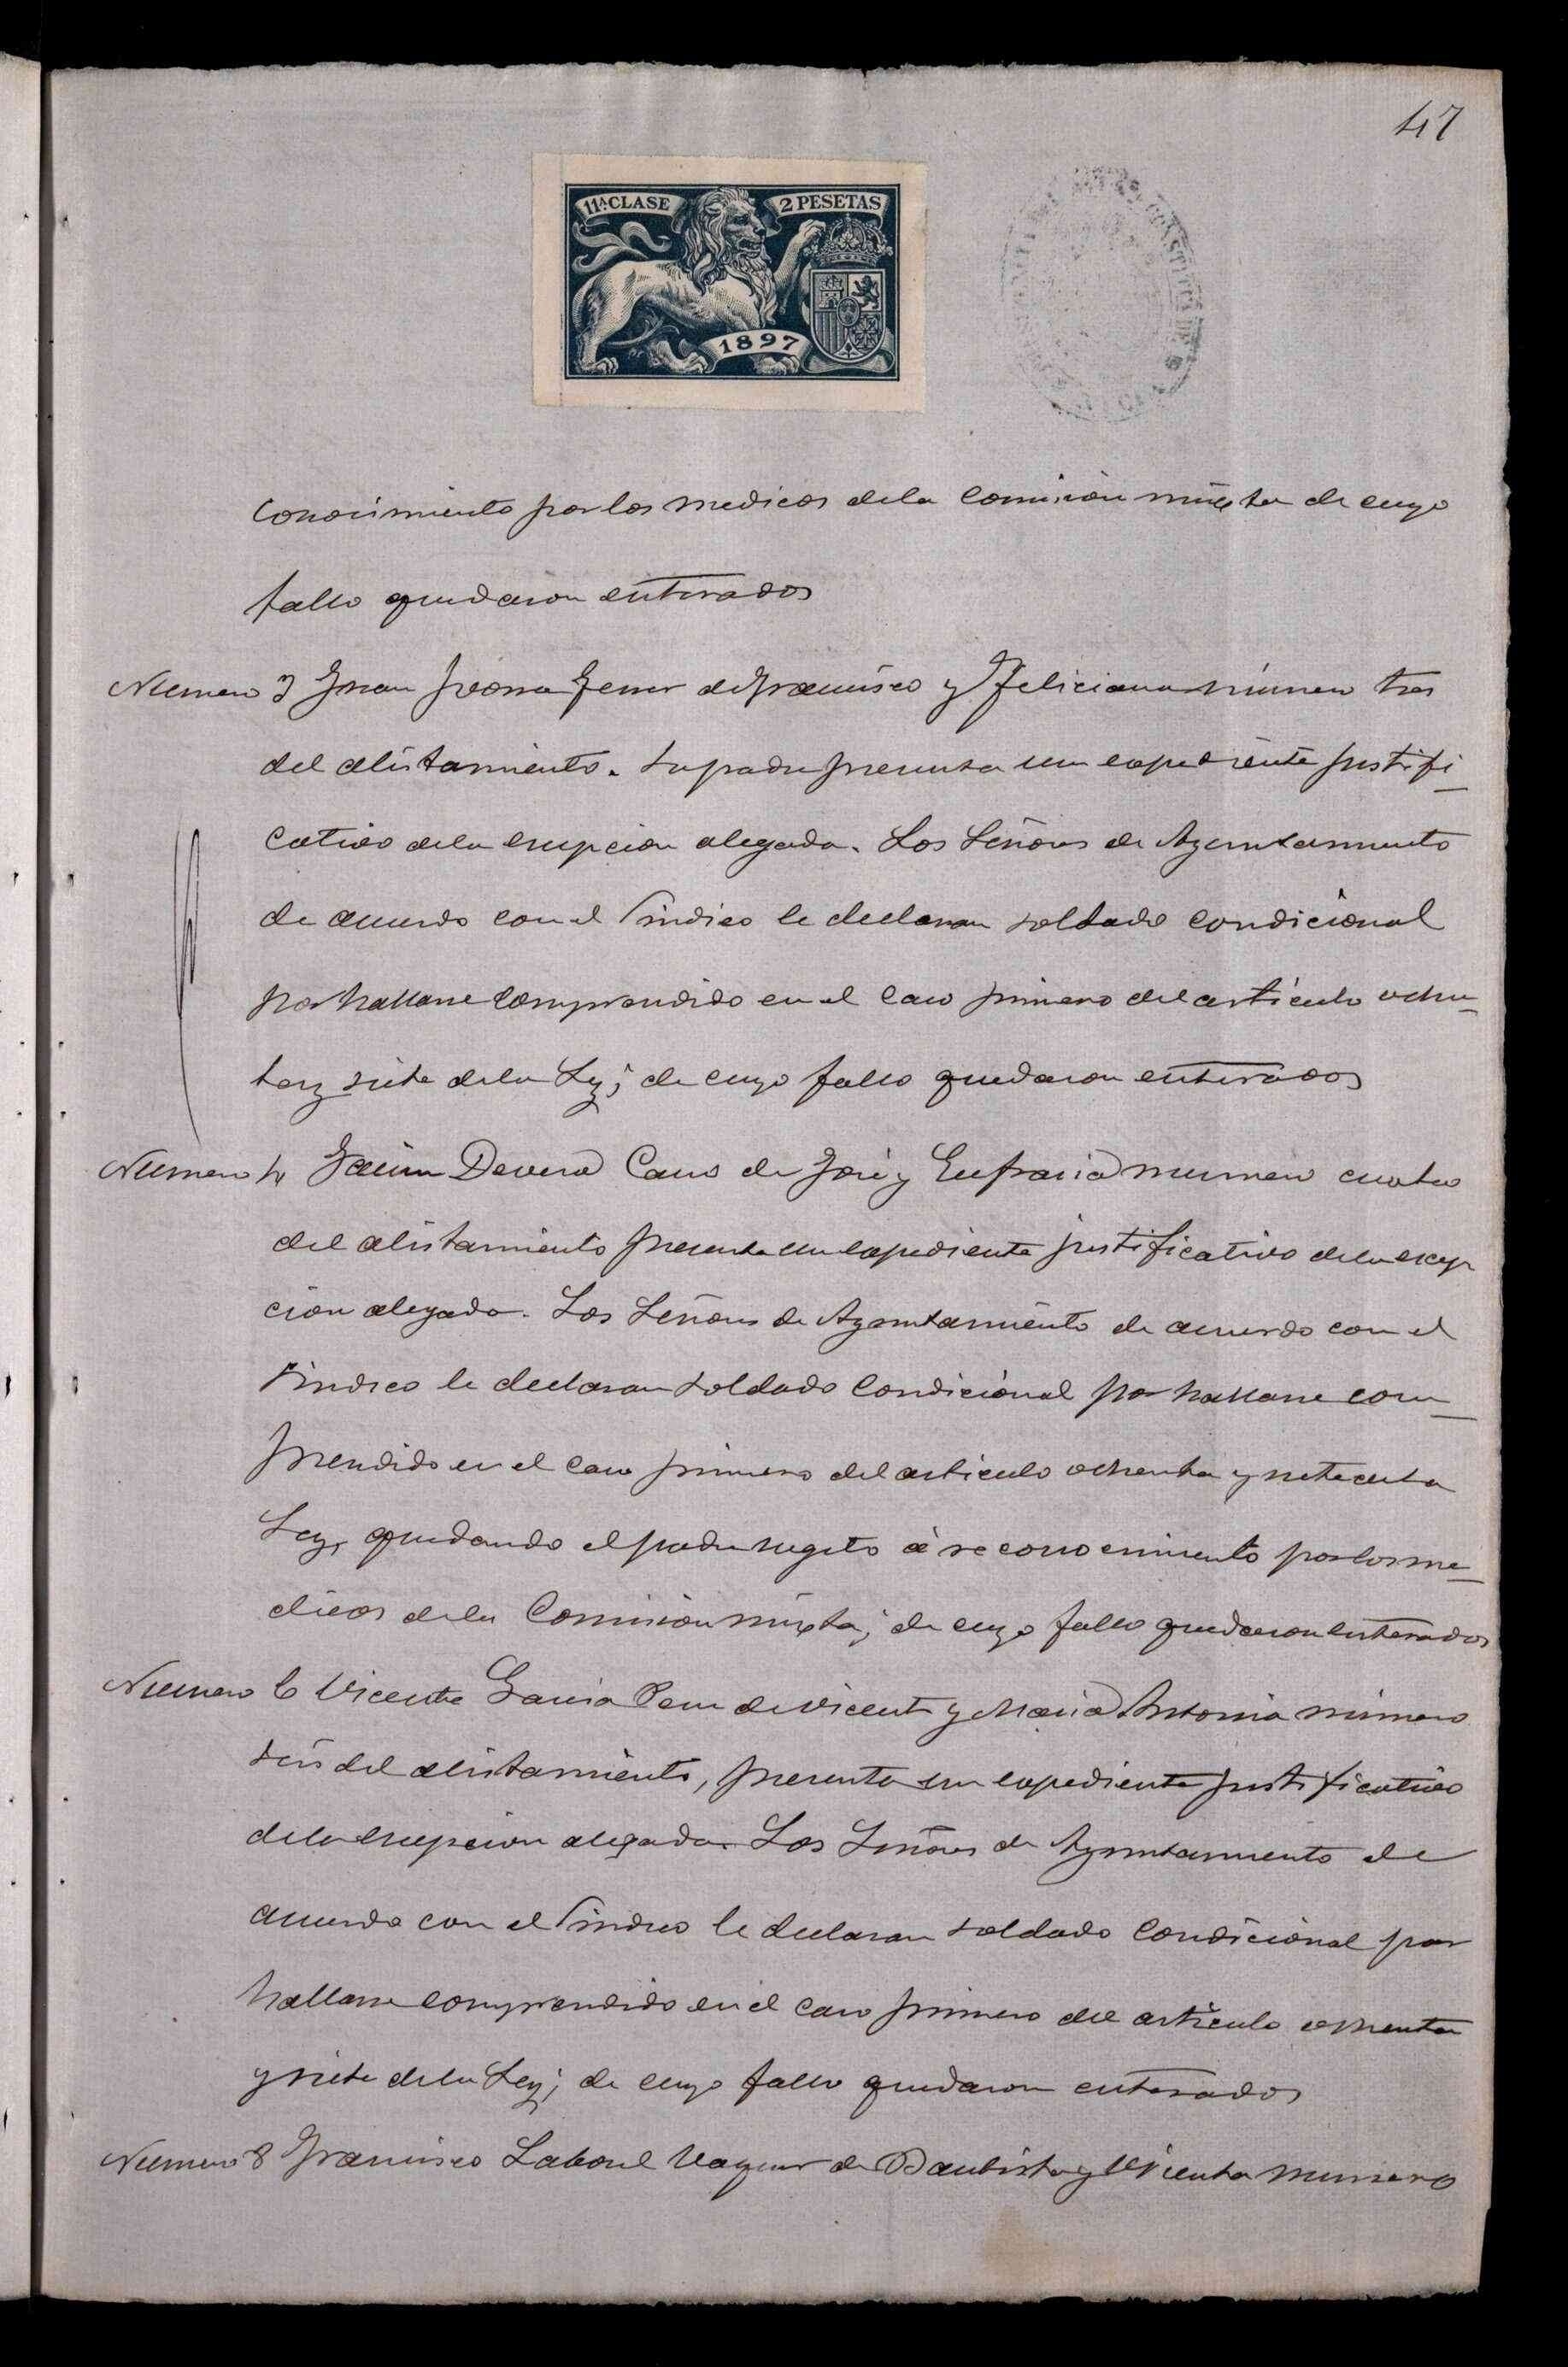 47
11ª CLASE 2 PESETAS
1897
conocimiento por los medicos dela Comision mixta de cuyo
fallo quedaron enterados
Numero 3 Juan Ferrer de Francisco y Feliciana número tres
del alistamiento. Su padre presenta un expediente justifi-
cativo dela escepcion alegada. Los Señores de Ayuntamiento
de acuerdo con el Sindico le declaran soldado condicional
por hallarse comprendido en el caso primero del articulo ochen-
ta y siete dela Ley; de cuyo fallo quedaron enterados
Numero 4 Jaime Devesa Cano de José y Eufrasia numero cuatro
del alistamiento presenta un expediente justificativo dela escep
cion alegada. Los Señores de Ayuntamiento de acuerdo con el
Sindico le declaran soldado condicional por hallarse com-
prendido en el caso primero del articulo ochenta y siete dela
Ley, quedando el padre sugeto á reconocimiento por los me-
dicos dela Comision mixta; de cuyo fallo quedaron enterados
Numero 6 Vicente Garcia de Vicente y Maria Antonia número
seis del alistamiento, presenta un expediente justificativo
dela escepcion alegada. Los Señores de Ayuntamiento de
acuerdo con el Sindico le declaran soldado condicional por
hallarse comprendido en el caso primero del articulo ochenta
y siete dela Ley; de cuyo fallo quedaron enterados
Numero 8 Francisco Vaquer de Bautista y Vicenta numero